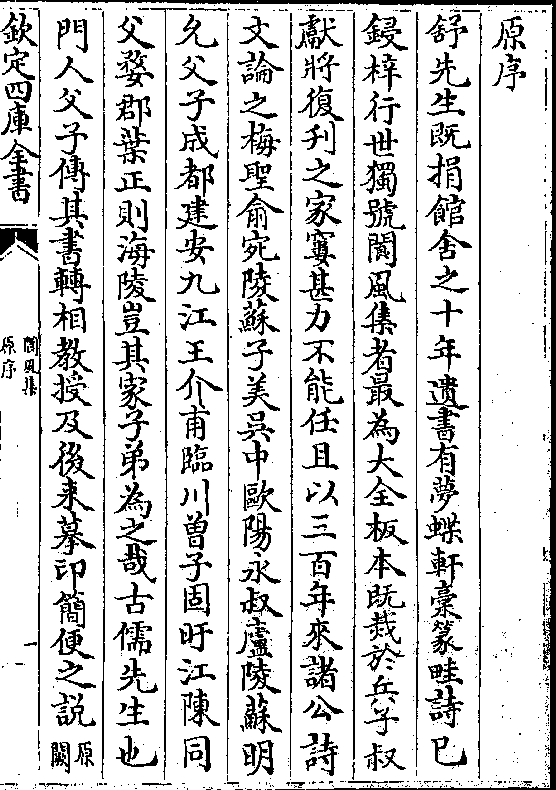 原序
舒先生既捐館舍之十年遺書有夢蝶軒稾篆畦詩已
鋟梓行世獨號閬風集者最為大全板本既烖於兵子叔
獻將復刋之家窶甚力不能任且以三百年來諸公詩
文論之梅聖俞宛陵蘇子美吳中歐陽永叔廬陵蘇明
允父子成都建安九江王介甫臨川曾子固旴江陳同
父婺郡葉正則海陵豈其家子弟為之哉古儒先生也
門人父子傳其書轉相教授及後來摹印簡便之説原闕
欽定四庫全書
閬風集
原序
一